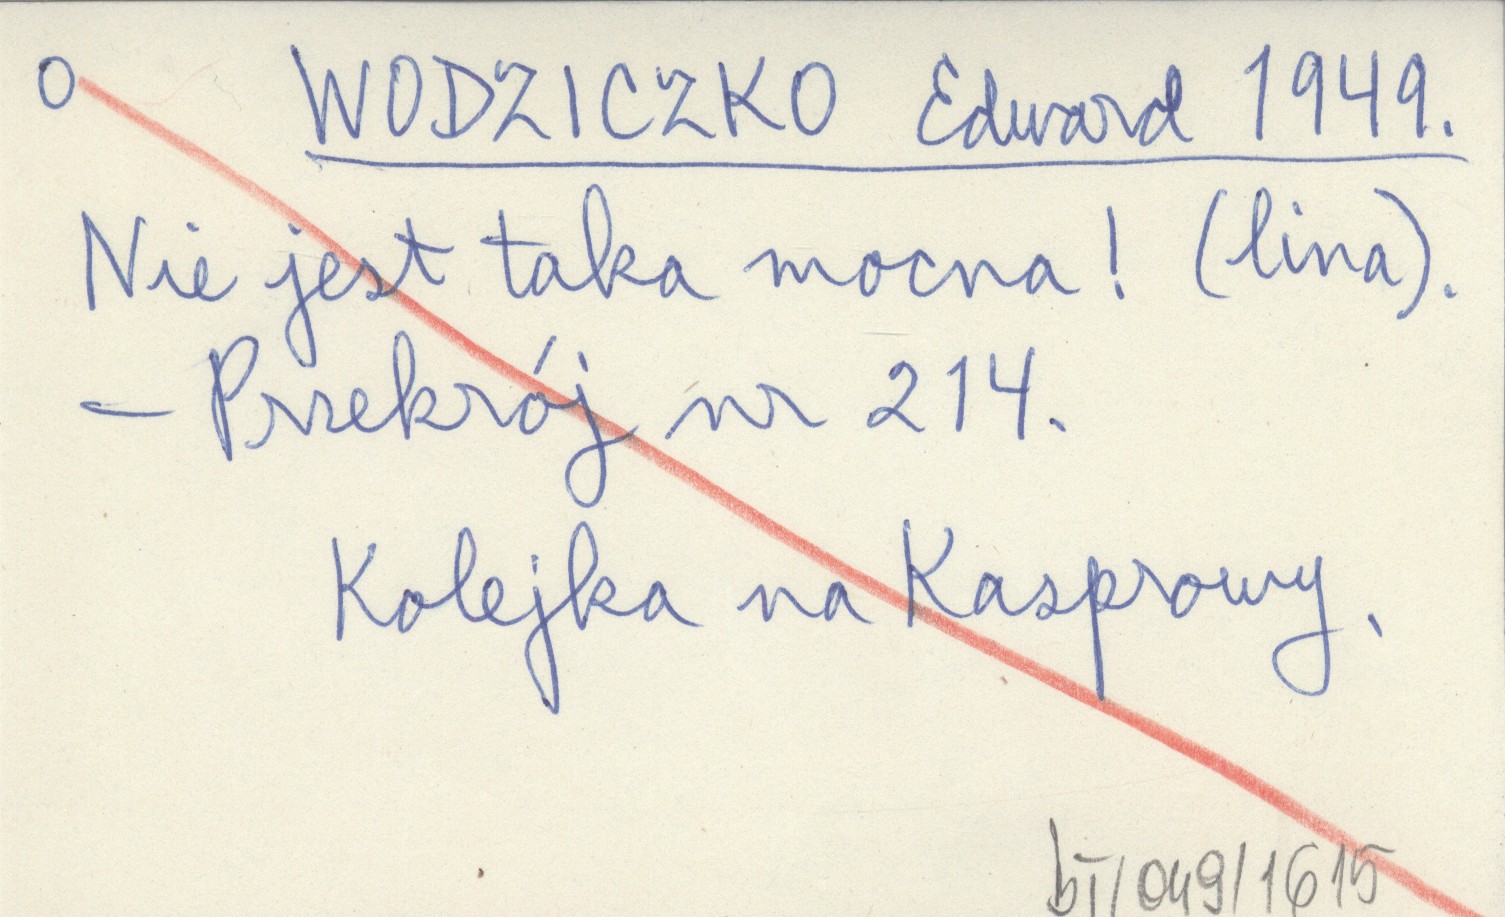 O WODZICZKO Edward 1949.
Nie jest taka mocna! (lina).
– Przekrój nr 214.
Kolejka na Kasprowy.
bI/049/1615